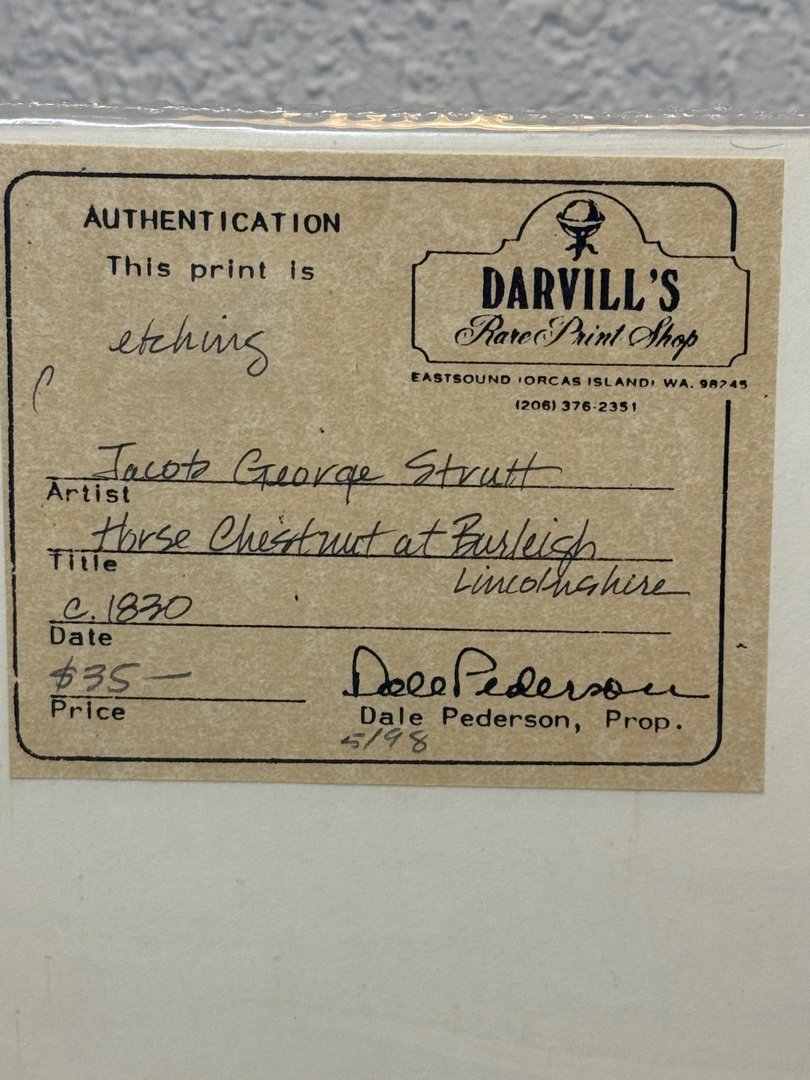 AUTHENTICATION
This print is
etching
DARVILL'S
Rare Print Shop
EASTSOUND (ORCAS ISLAND) WA. 98245
(206) 376-2351
Jacob George Strutt
Artist
Horse Chestnut at Burleigh
Title
Lincolnshire
c. 1830
Date
$35—
Price
Dale Pederson
Dale Pederson, Prop.
5/98